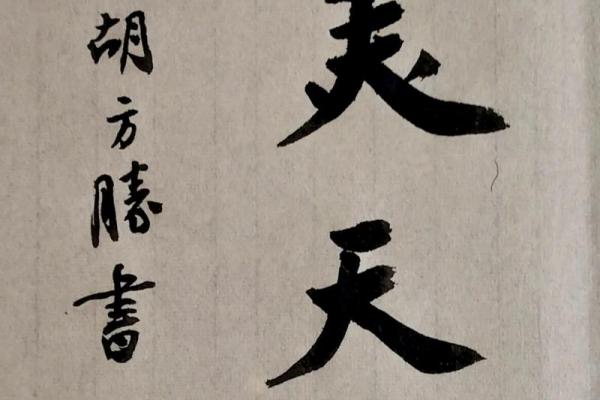 天
胡方勝書